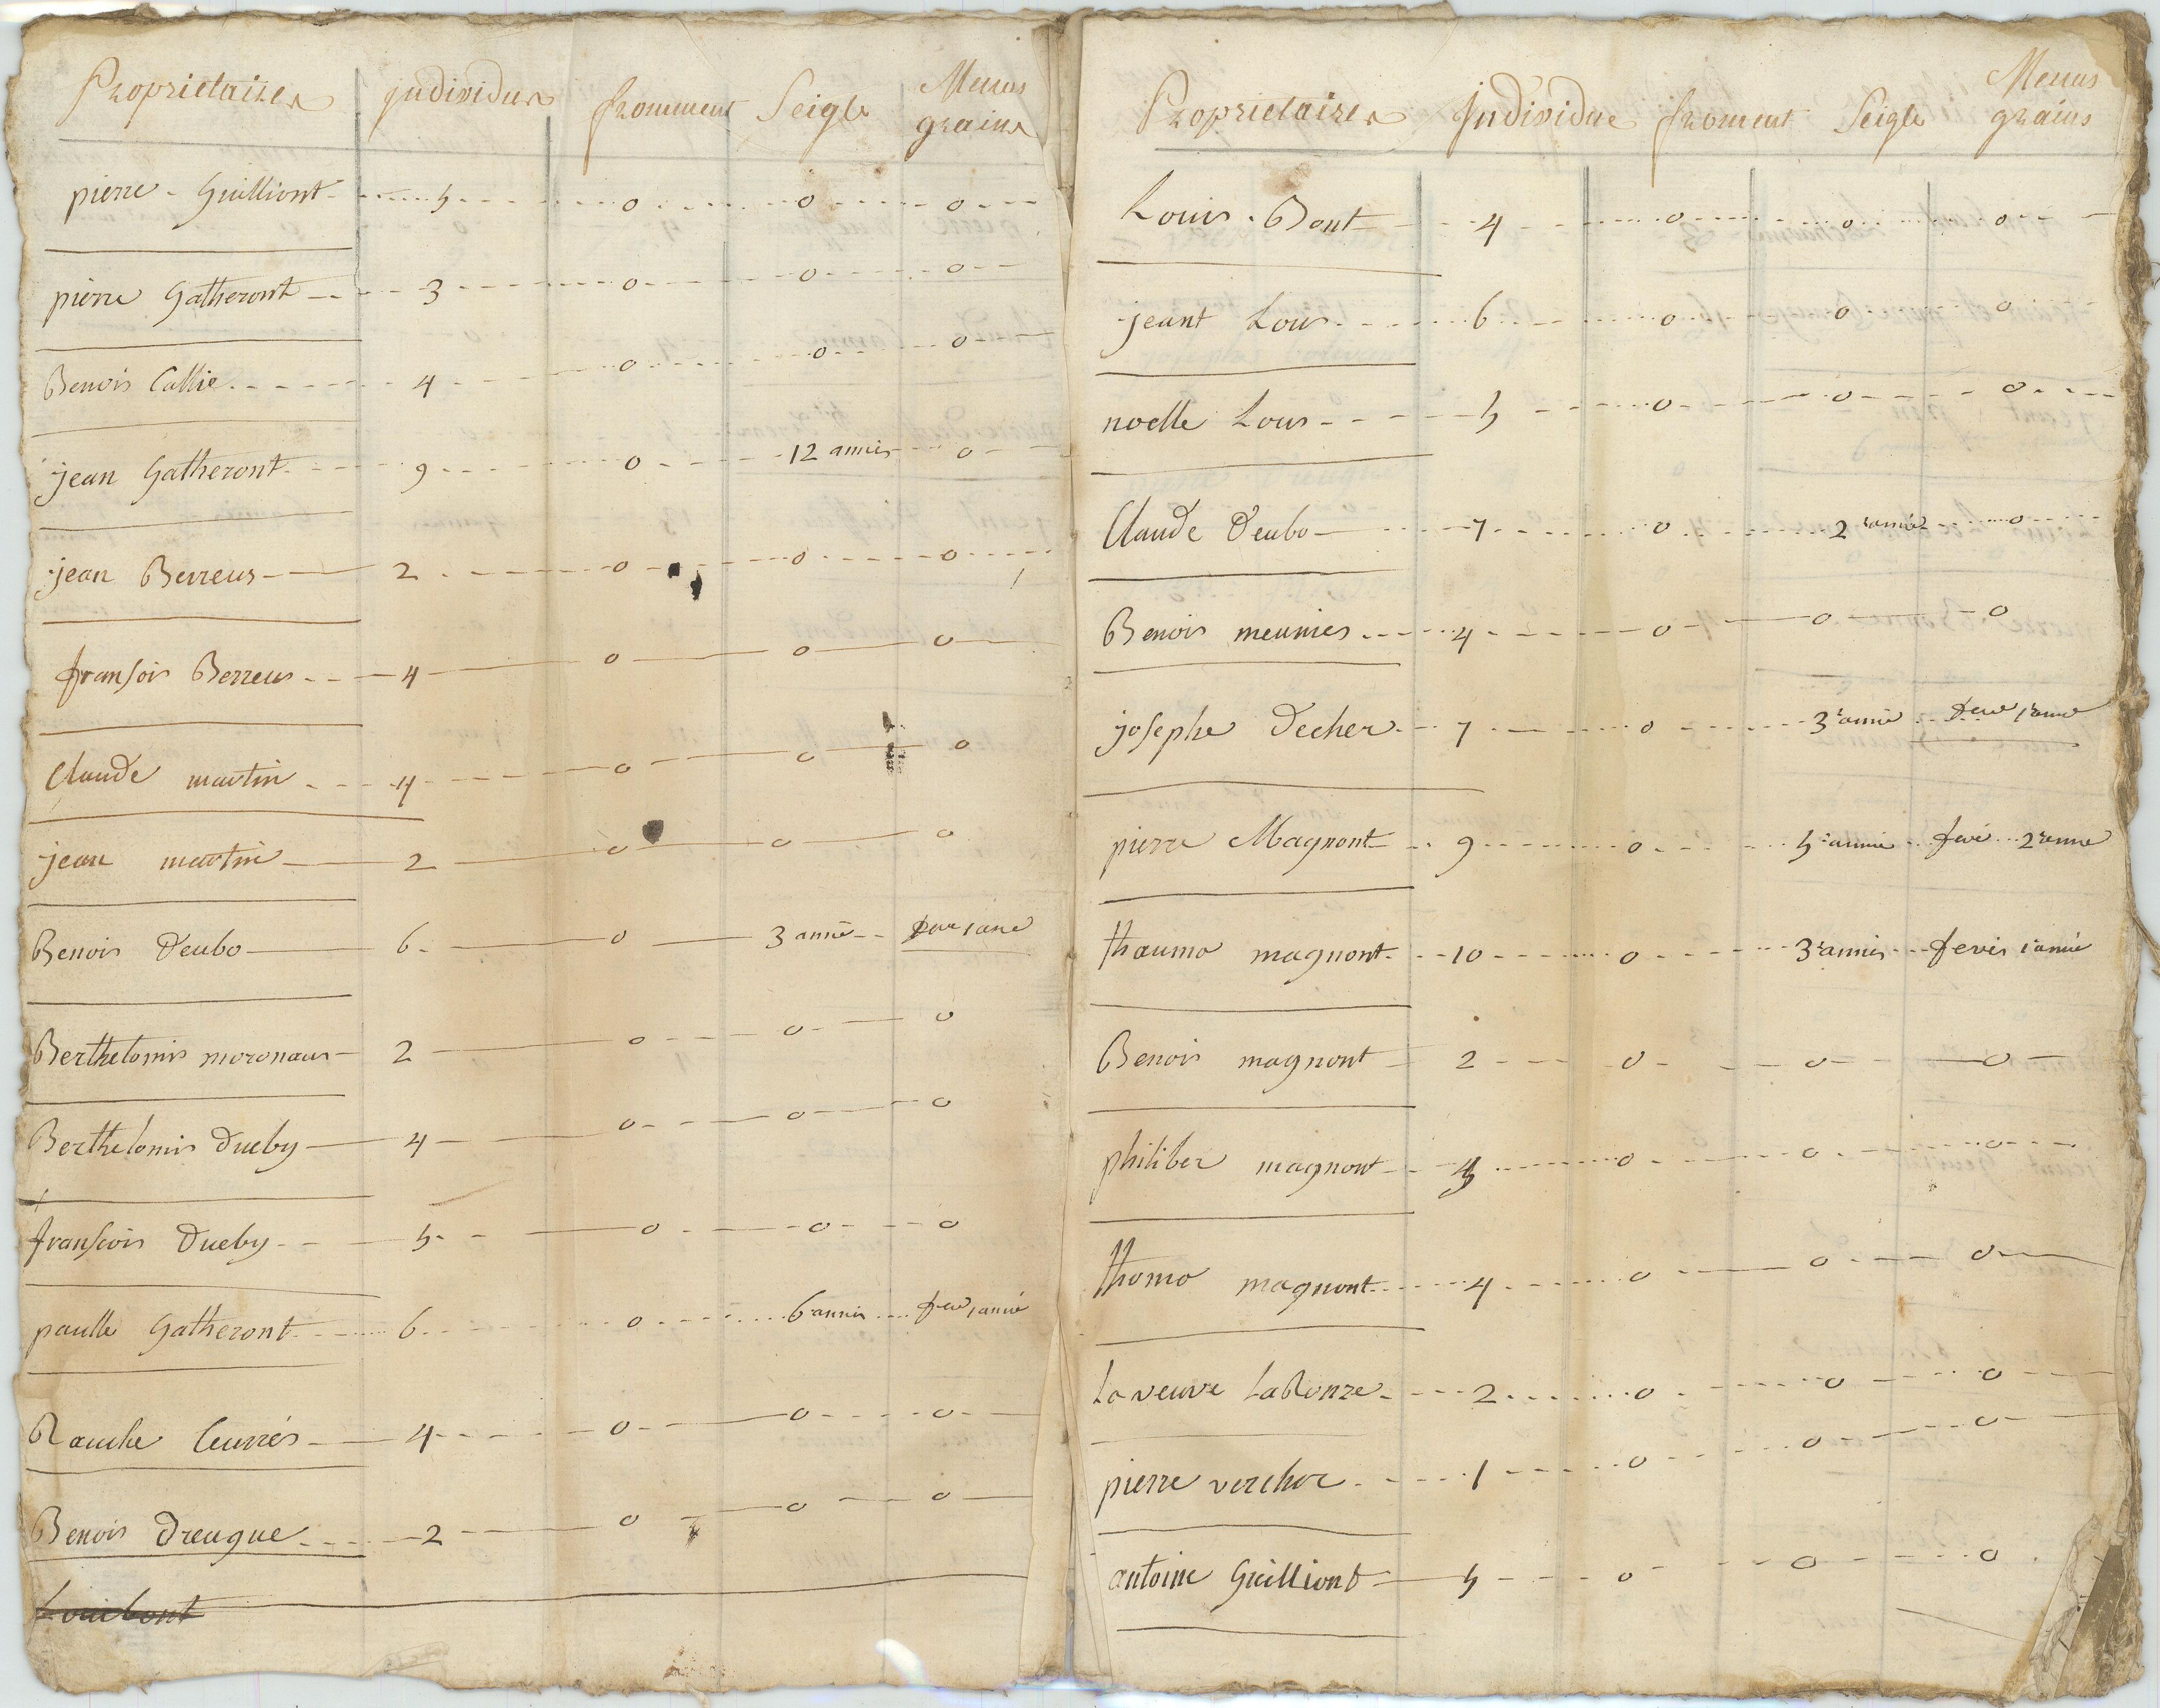 Proprietaires individus fromment Seigle Menus grains
pierre Guilliont 5 0 0 0
pierre Gatheront 3 0 0 0
Benois Callie 4 0 0 0
jean Gatheront 9 0 12 annes 0
jean Berreus 2 0 0 0
fransois Berreus 4 0 0 0
Claude martin 4 0 0 0
jean martin 2 0 0 0
Benois Deubo 6 0 3 anne
Berthelomis moronaus 2 0 0 0
Berthelomis Dueby 4 0 0 0
franscois Dueby 5 0 0 0
paulle Gatheront 6 0 6 annes
4 0 0 0
Benois Dreugue 2 0 0 0
Louibont
Proprietaires individue froment Seigle Menus grains
Louis Bont 4 0 0 0
jeant Lous 6 0 0 0
noelle Lous 5 0 0 0
Claude Deubo 7 0 2 0
Benois meunies 4 0 0 0
josephe Decher 7 0 3
pierre Magnont 9 0 5
thaumo magnont 10 0 3 feves 1
Benois magnont 2 0 0 0
philiber magnont 0 0 0
thomo magnont 4 0 0 0
La veuve LaRonze 2 0 0 0
pierre vercher 1 0 0 0
antoine Guilliont 5 0 0 0